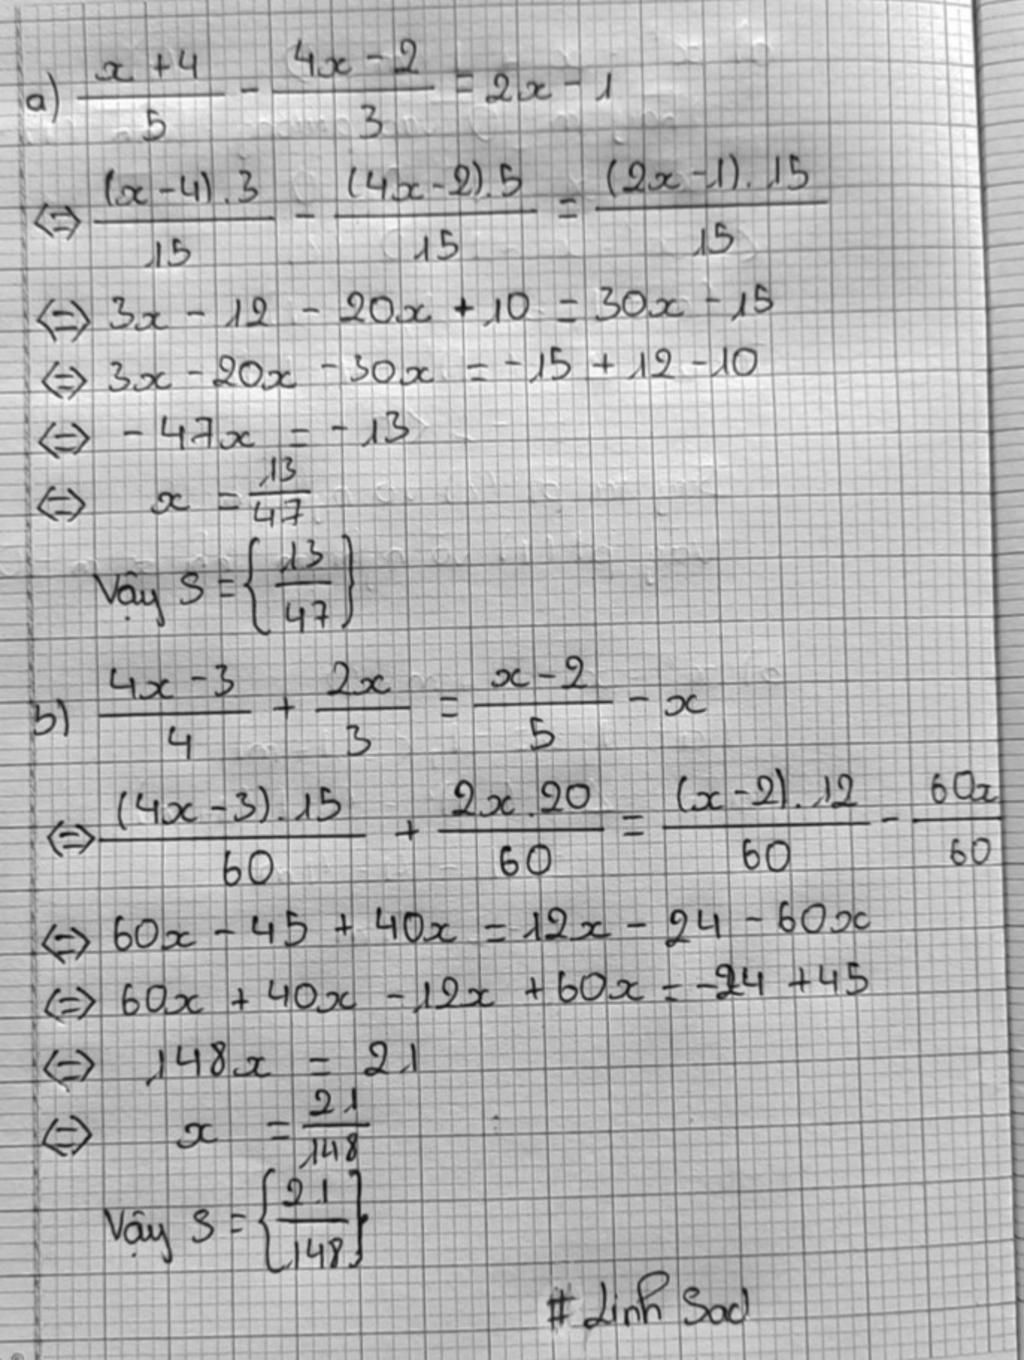 a) \frac{x+4}{5} - \frac{4x-2}{3} = 2x-1
⇔ \frac{(x-4).3}{15} - \frac{(4x-2).5}{15} = \frac{(2x-1).15}{15}
⇔ 3x - 12 - 20x + 10 = 30x - 15
⇔ 3x - 20x - 30x = -15 + 12 - 10
⇔ -47x = -13
⇔ x = \frac{13}{47}
Vậy S = {\frac{13}{47}}
b) \frac{4x-3}{4} + \frac{2x}{3} = \frac{x-2}{5} - x
⇔ \frac{(4x-3).15}{60} + \frac{2x.20}{60} = \frac{(x-2).12}{60} - \frac{60x}{60}
⇔ 60x - 45 + 40x = 12x - 24 - 60x
⇔ 60x + 40x - 12x + 60x = -24 + 45
⇔ 148x = 21
⇔ x = \frac{21}{148}
Vậy S = {\frac{21}{148}}
# Linh Sad